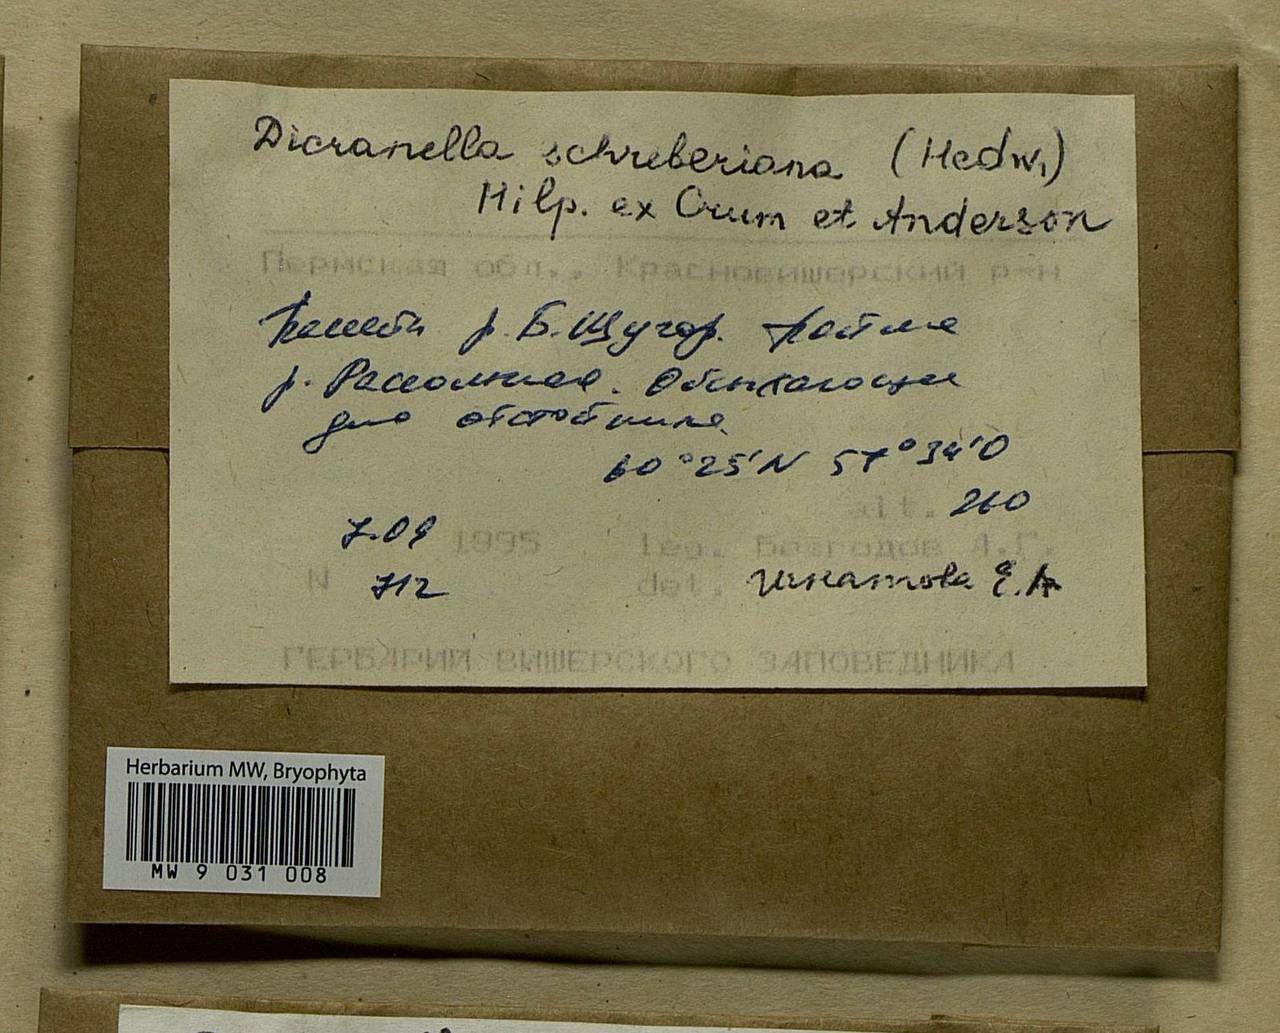 Dicranella schreberiana (Hedw.)
Hilp. ex Crum et Anderson
Пермская обл., Красновишерский р-н
р. Б. Щугор. Пойма
р. Рассольная. Обсыхающее
дно отстойника
60°25'N 57°34'O
alt. 260
7.09 1995 leg. Безгодов А.Г.
N 712 det. Игнатова Е.А
ГЕРБАРИЙ ВИШЕРСКОГО ЗАПОВЕДНИКА
Herbarium MW, Bryophyta
MW 9 031 008